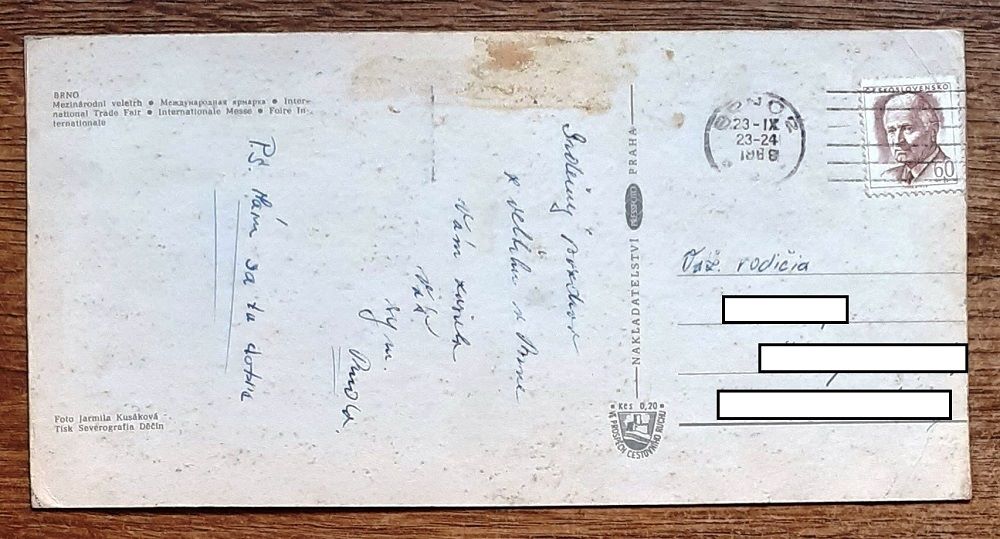 BRNO
Mezinárodní veletrh • Международная ярмарка • Inter-
national Trade Fair • Internationale Messe • Foire In-
ternationale
Srdečný pozdrav
z veltrhu v Brne
Vám
Váš
syn.
PS. Mám sa tu dobre
Foto Jarmila Kusáková
Tisk Severografia Děčín
NAKLADATELSTVÍ PRESSFOTO PRAHA
Kčs 0,20
VE PROSPĚCH CESTOVNÍHO RUCHU
BRNO 2
23-IX
23-24
ČESKOSLOVENSKO
60
Váž. rodičia